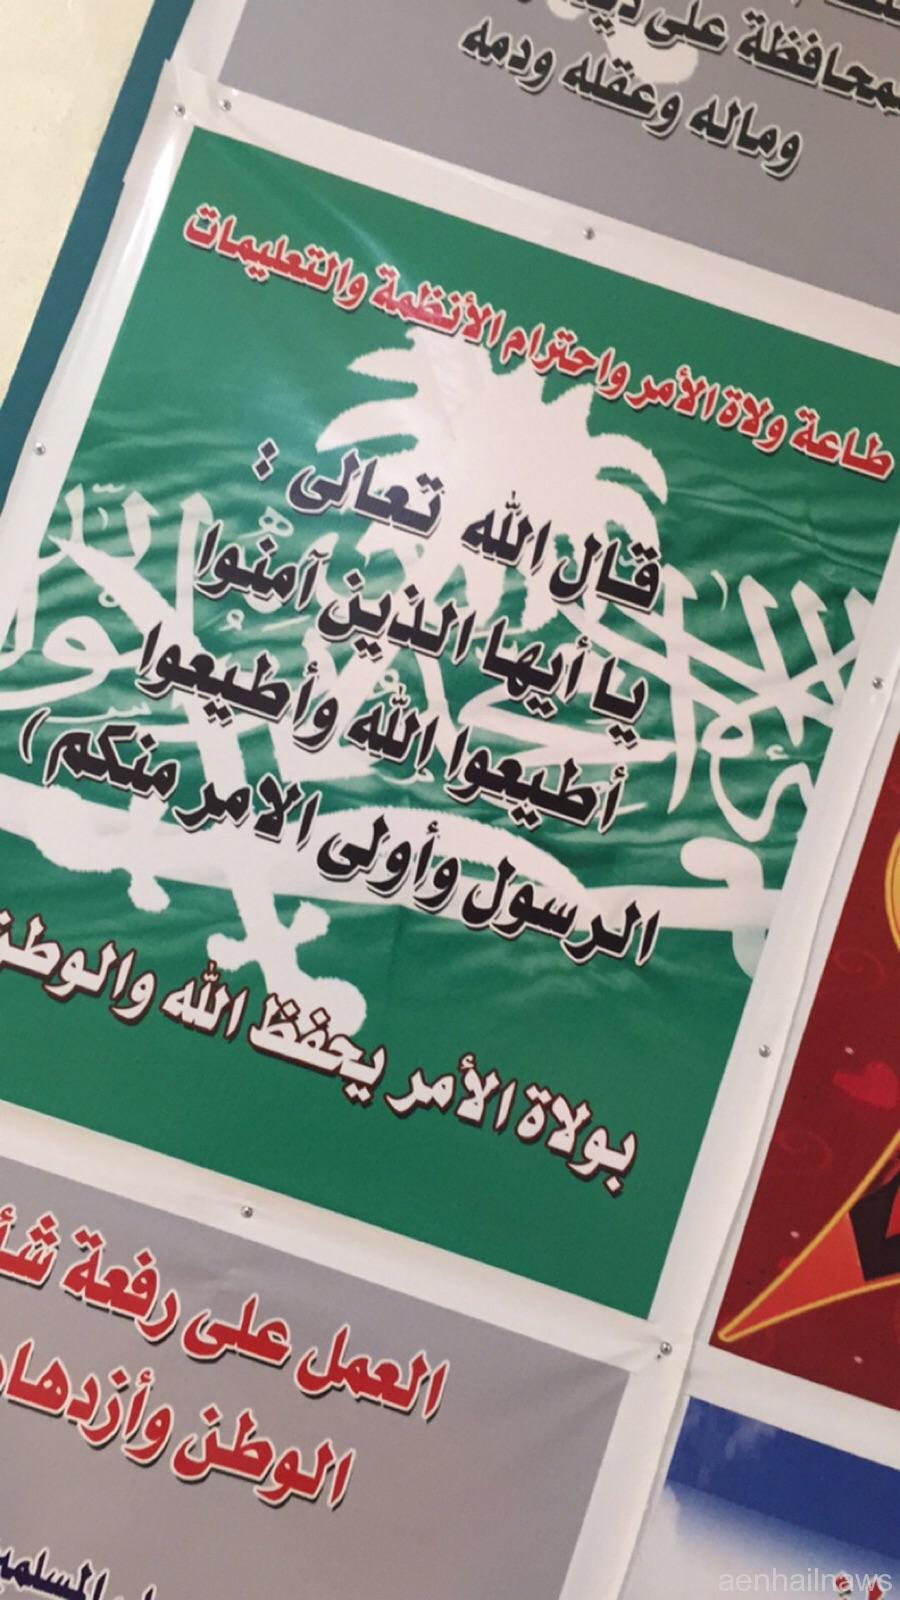 محافظة على
وماله وعقله ودمه
طاعة ولاة الأمر واحترام الأنظمة والتعليمات
قال الله تعالى :
يا أيها الذين آمنوا
أطيعوا الله وأطيعوا
الرسول وأولى الامر منكم )
بولاة الأمر يحفظ الله والوطن
العمل على رفعة
الوطن
aenhailnaws